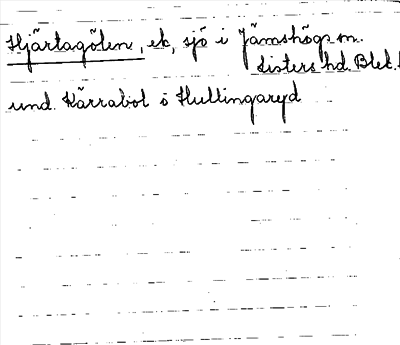 Hjärtagölen, ek, sjö i Jämshögs m.
Listers hd. Blek.
und. Kärrabol o Hullingaryd